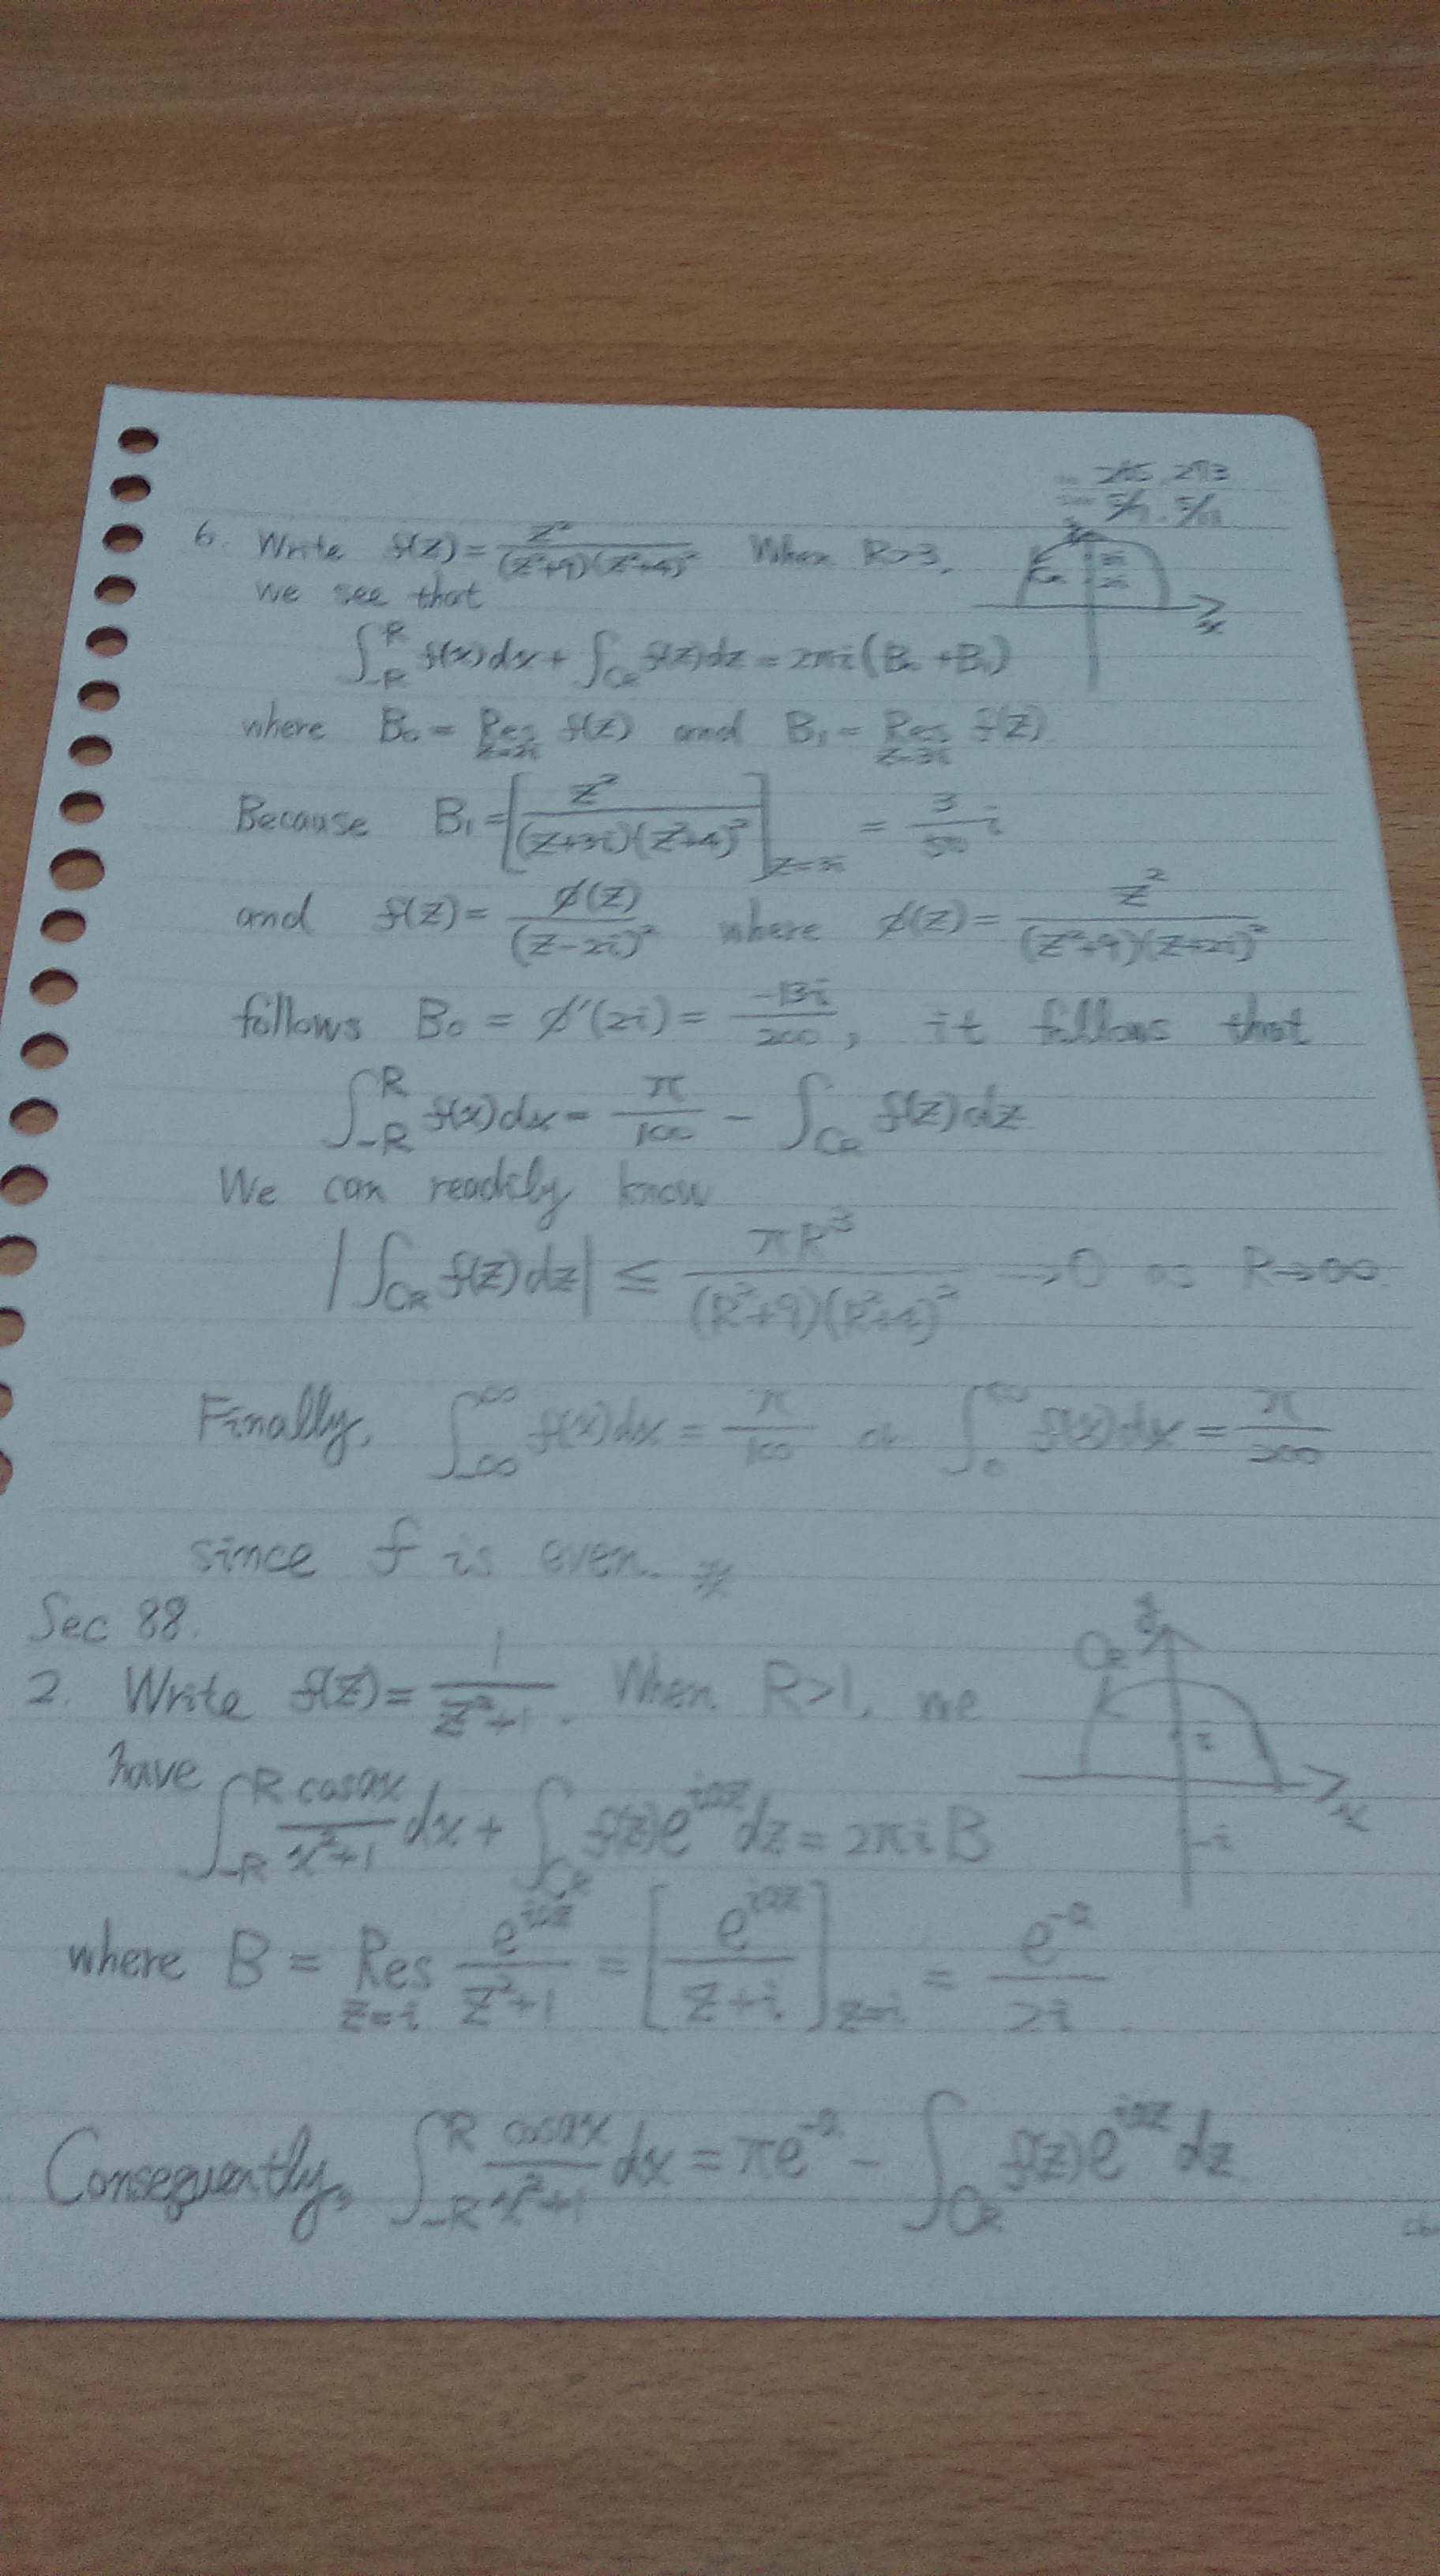 265, 273
5/11, 5/11
6. Write f(z) = z²/((z²+9)(z²+4)²) When R>3,
we see that
∫_{-R}^{R} f(x)dx + ∫_{C_R} f(z)dz = 2πi(B₀ + B₁)
where B₀ = Res_{z=2i} f(z) and B₁ = Res_{z=3i} f(z)
Because B₁ = [z²/((z+3i)(z²+4)²)]_{z=3i} = 3/50 i
and f(z) = ϕ(z)/(z-2i)² where ϕ(z) = z²/((z²+9)(z+2i)²)
follows B₀ = ϕ'(2i) = -13i/200, it follows that
∫_{-R}^{R} f(x)dx = π/100 - ∫_{C_R} f(z)dz
We can readily know
|∫_{C_R} f(z)dz| ≤ πR³/((R²+9)(R²+4)²) → 0 as R→∞.
Finally, ∫_{-∞}^{∞} f(x)dx = π/100 or ∫_0^∞ f(x)dx = π/200
since f is even. #
Sec 88.
2. Write f(z) = 1/(z²+1). When R>1, we
have
∫_{-R}^{R} cosax/(x²+1) dx + ∫_{C_R} f(z)e^{iaz}dz = 2πi B
where B = Res_{z=i} e^{iaz}/(z²+1) = [e^{iaz}/(z+i)]_{z=i} = e^{-a}/2i.
Consequently, ∫_{-R}^{R} cosax/(x²+1) dx = πe^{-a} - ∫_{C_R} f(z)e^{iaz}dz.
y
C_R
3i
2i
x
y
C_R
i
x
-i